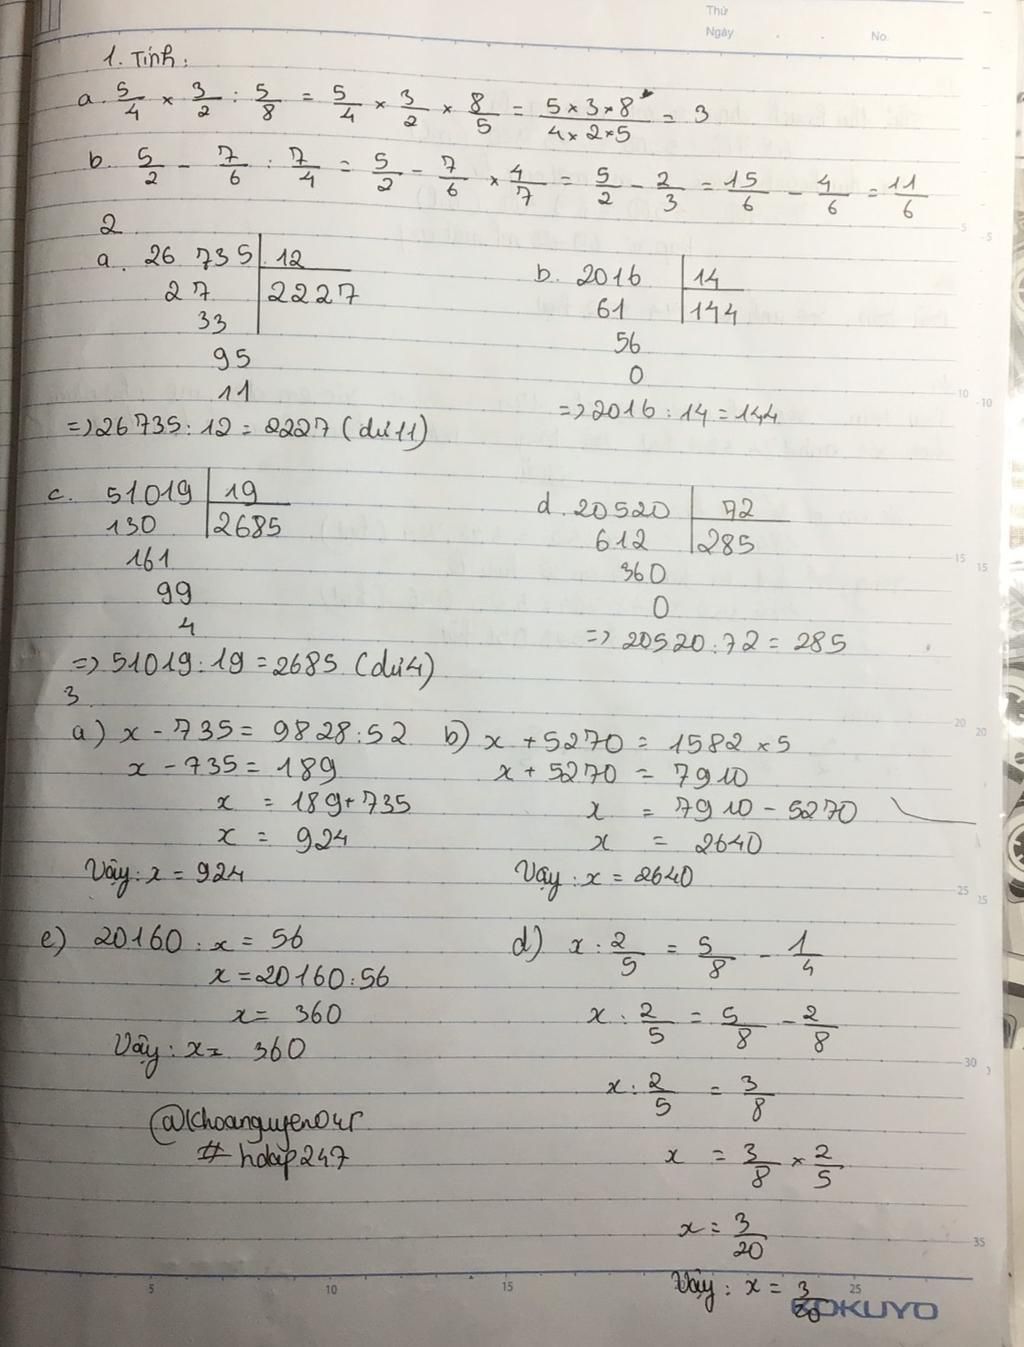 Thứ
Ngày . . No.
1. Tính:
a. 5/4 × 3/2 : 5/8 = 5/4 × 3/2 × 8/5 = 5×3×8/4×2×5 = 3
b. 5/2 - 7/6 : 7/4 = 5/2 - 7/6 × 4/7 = 5/2 - 2/3 = 15/6 - 4/6 = 11/6
2
a. 26 735 | 12
27 | 2227
33
95
11
=> 26735 : 12 = 2227 (dư 11)
b. 2016 | 14
61 | 144
56
0
=> 2016 : 14 = 144
c. 51019 | 19
130 | 2685
161
99
4
=> 51019 : 19 = 2685 (dư 4)
d. 20520 | 72
612 | 285
360
0
=> 20520 : 72 = 285
3
a) x - 735 = 9828 : 52
x - 735 = 189
x = 189 + 735
x = 924
Vậy : x = 924
b) x + 5270 = 1582 × 5
x + 5270 = 7910
x = 7910 - 5270
x = 2640
Vậy : x = 2640
c) 20160 : x = 56
x = 20160 : 56
x = 360
Vậy : x = 360
@khoanguyen045
# hdap247
d) x : 2/5 = 5/8 - 1/4
x : 2/5 = 5/8 - 2/8
x : 2/5 = 3/8
x = 3/8 × 2/5
x = 3/20
Vậy : x = 3/20
5
10
15
20
25
30
35
5 10 15 25
KOKUYO